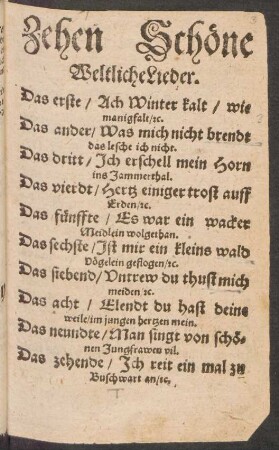 Zehen Schöne
Weltliche Lieder.
Das erste / Ach Winter kalt / wie
manigfalt / ꝛc.
Das ander / Was mich nicht brendt
das lesche ich nicht.
Das dritt / Ich erschell mein Horn
ins Jammerthal.
Das vierdt / Hertz einiger trost auff
Erden / ꝛc.
Das fünffte / Es war ein wacker
Meidlein wolgethan.
Das sechste / Ist mir ein kleins wald
Vögelein geflogen / ꝛc.
Das siebend / Vntrew du thust mich
meiden / ꝛc.
Das acht / Elendt du hast deine
weile / im jungen hertzen mein.
Das neundte / Man singt von schö-
nen Jungfrawen vil.
Das zehende / Ich reit ein mal zu
Buschwart an / ꝛc.